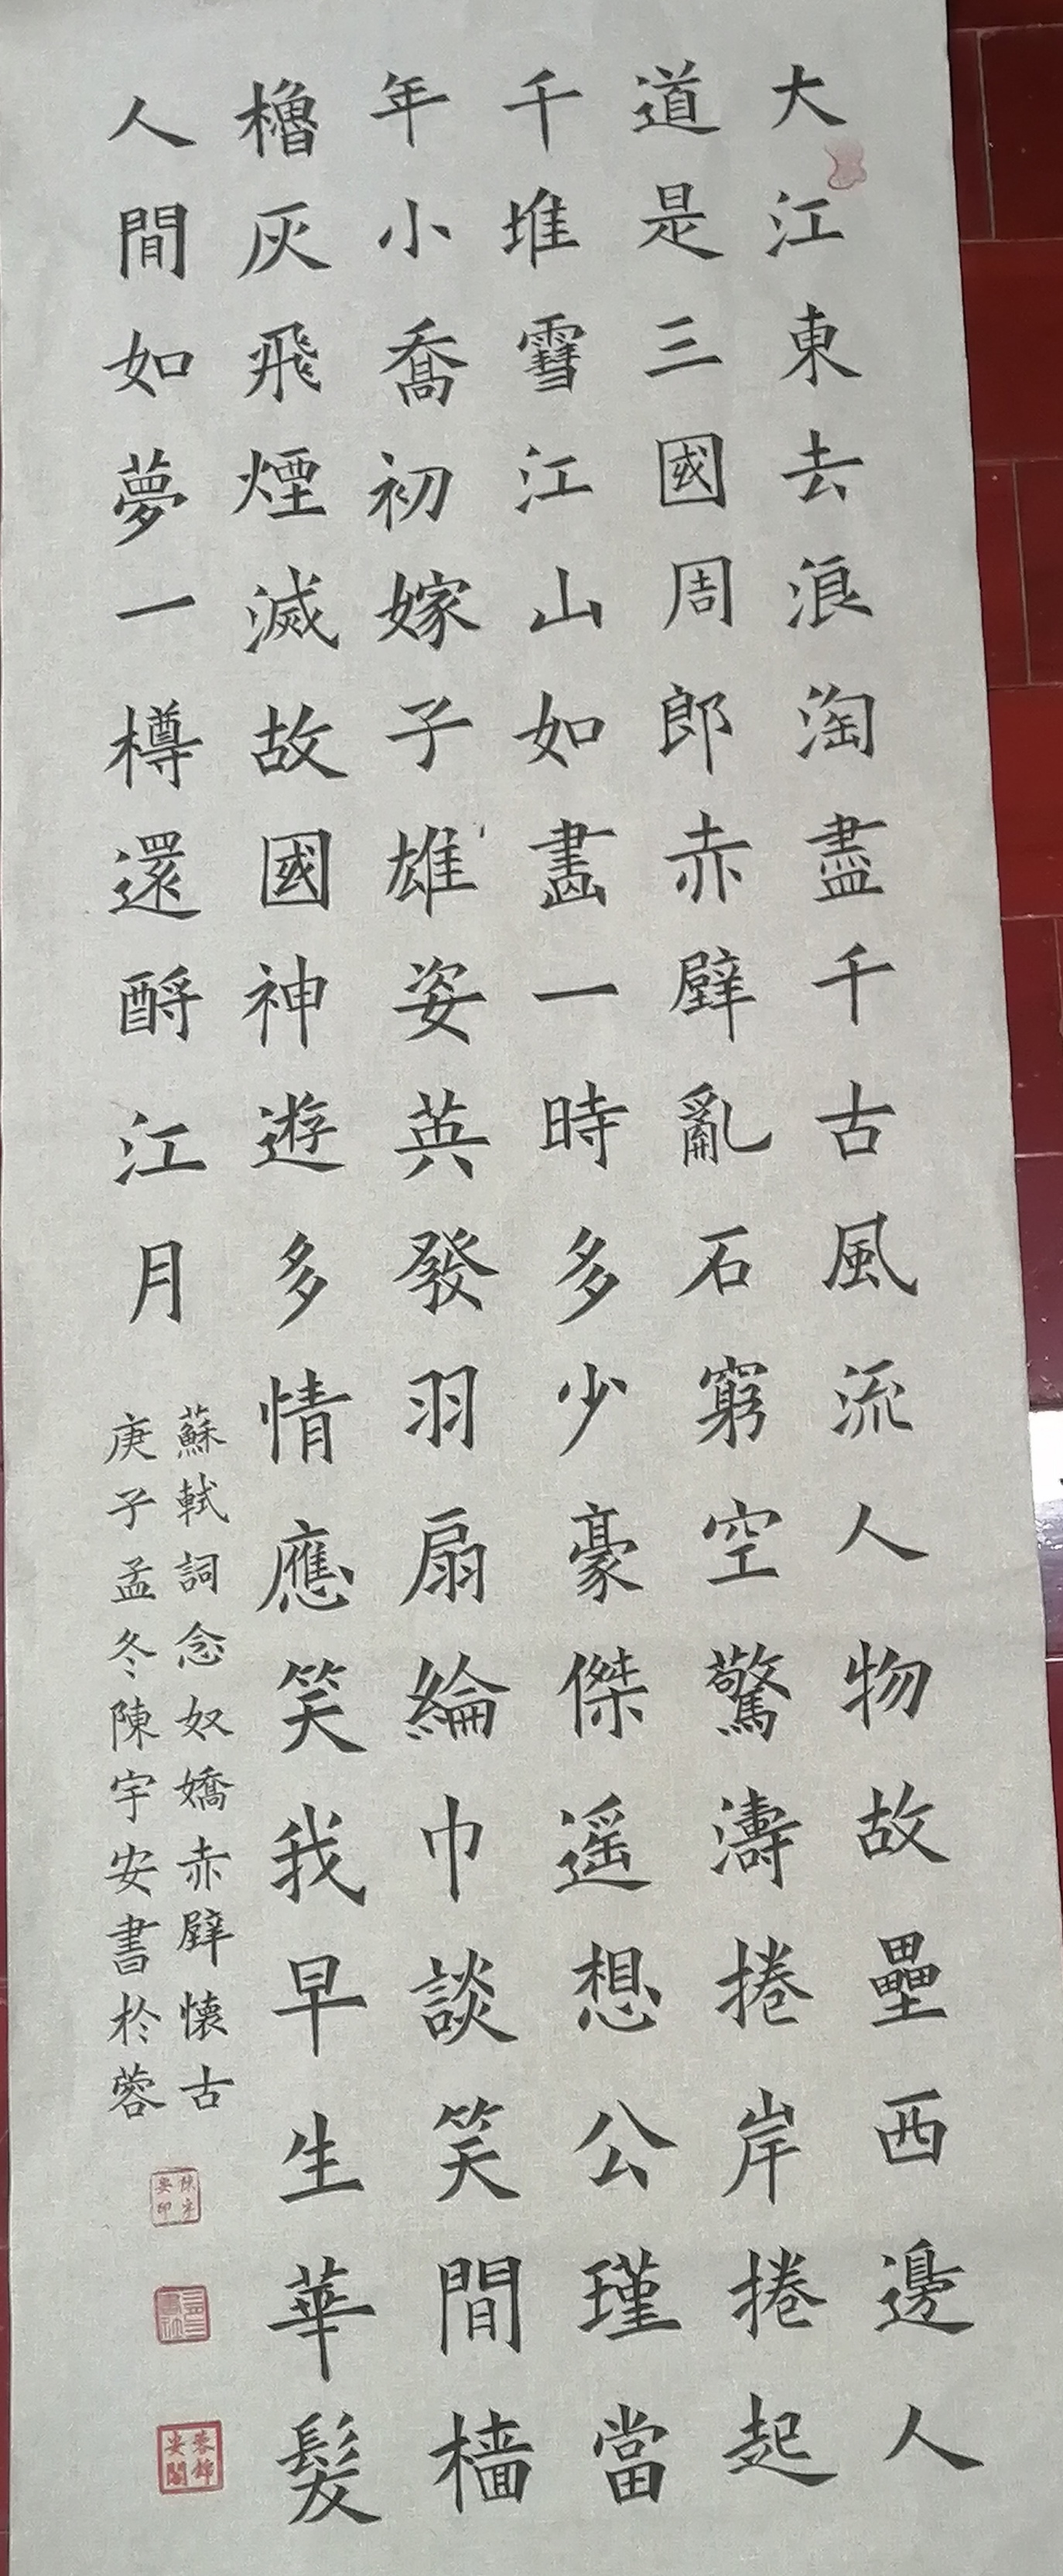 大江東去浪淘盡千古風流人物故壘西邊人
道是三國周郎赤壁亂石窮空驚濤捲岸捲起
千堆雪江山如畫一時多少豪傑遥想公瑾當
年小喬初嫁子雄姿英發羽扇綸巾談笑間檣
櫓灰飛煙滅故國神遊多情應笑我早生華髮
人間如夢一樽還酹江月
蘇軾詞念奴嬌赤壁懷古
庚子孟冬陳宇安書於蓉
陳宇安印